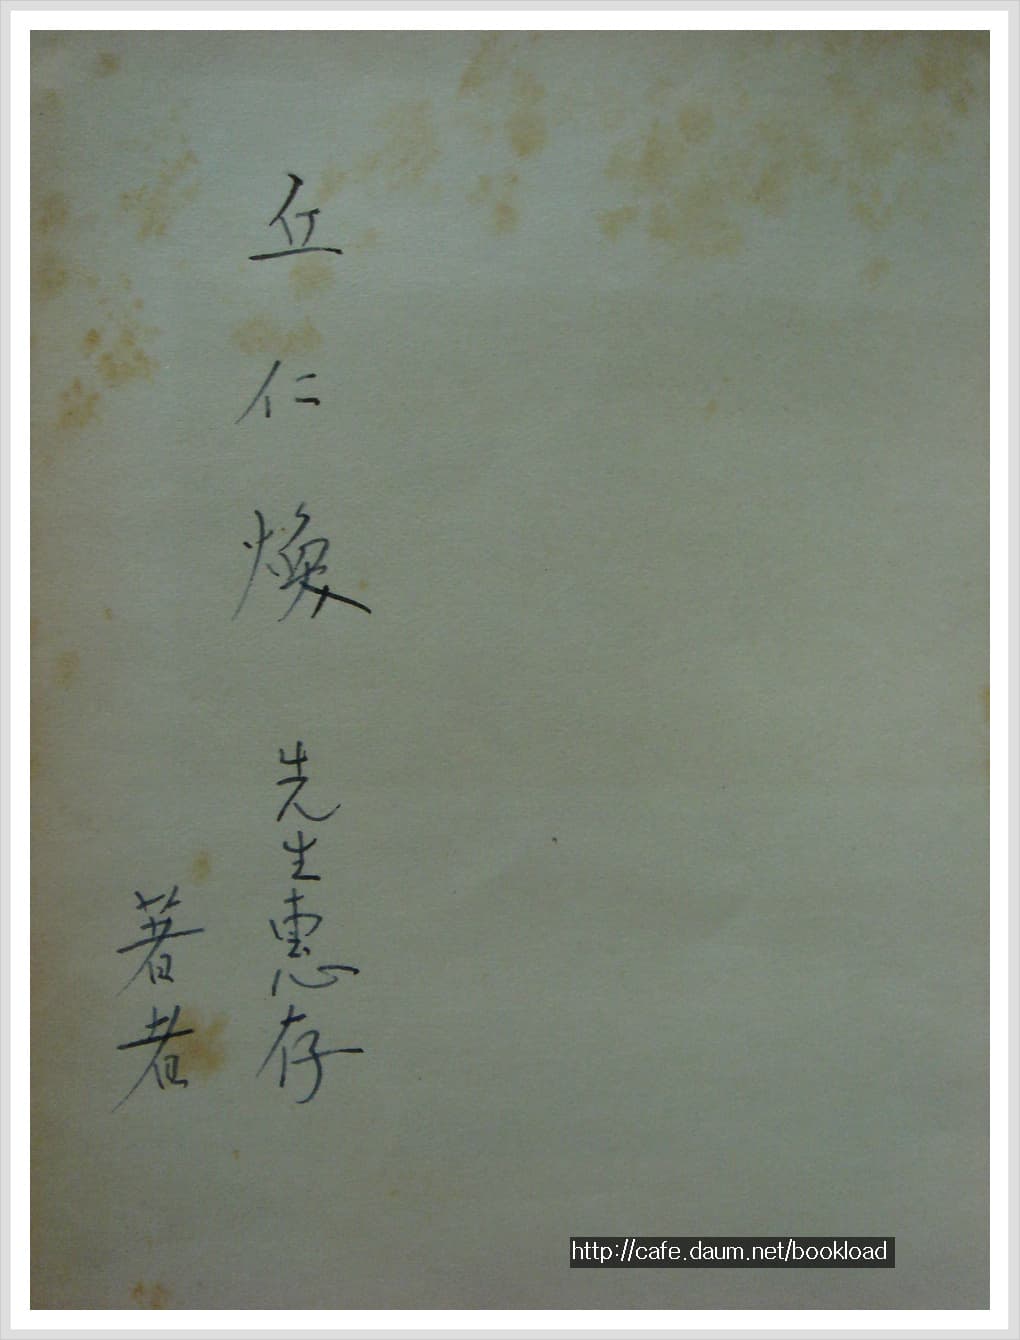 丘仁煥 先生惠存
著者
http://cafe.daum.net/bookload